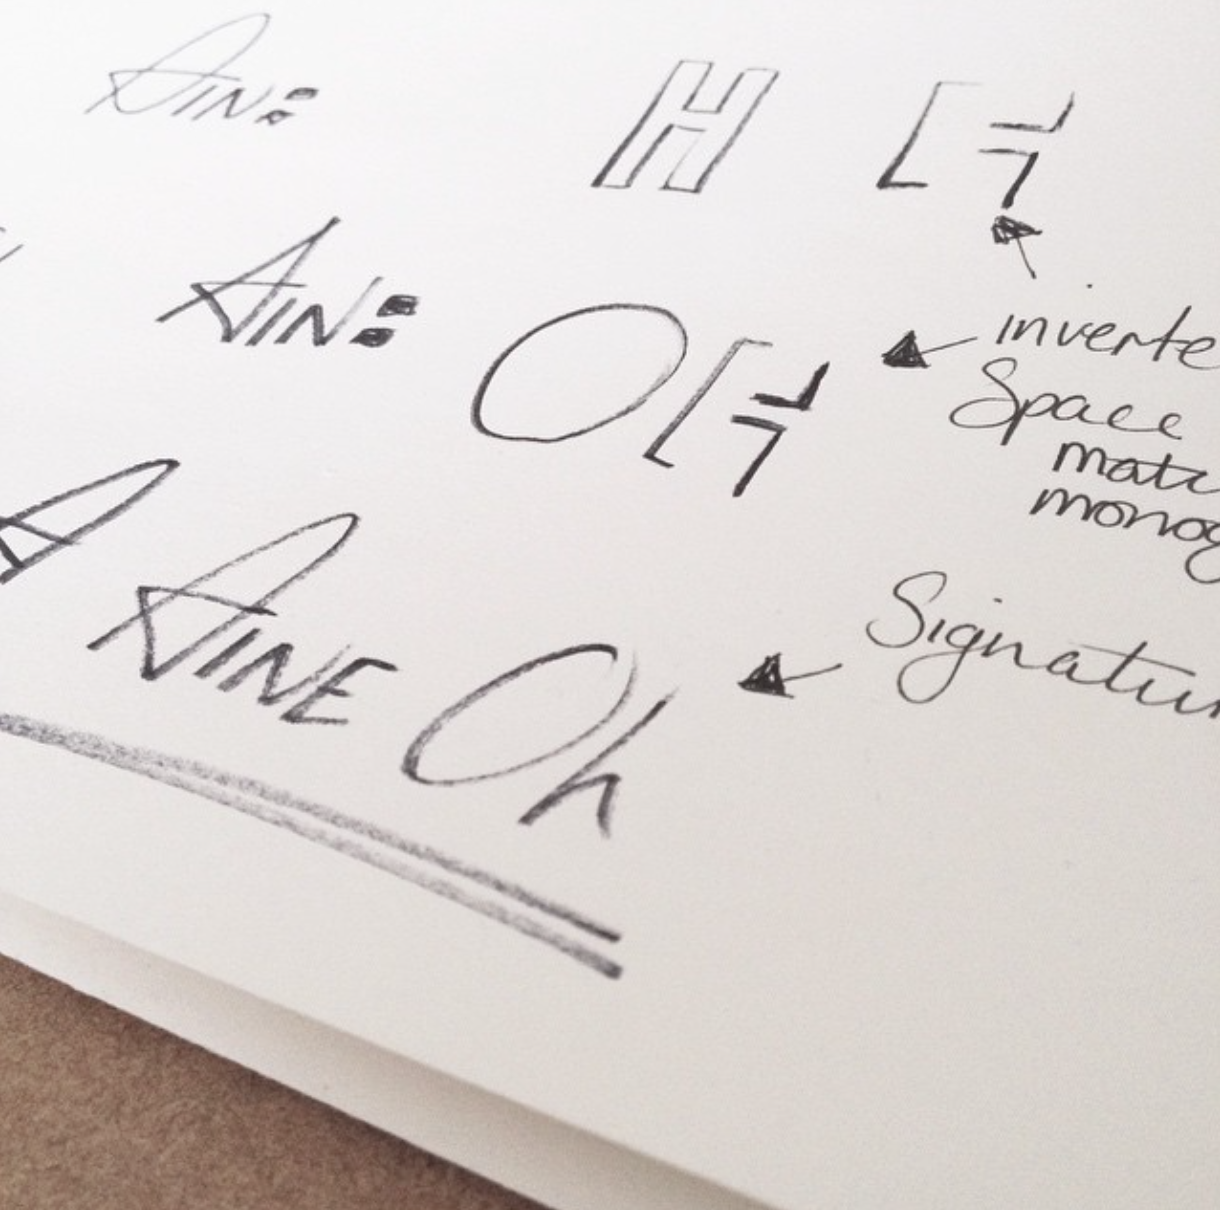 AIN:
H
AIN:
O
inverte
Space
matc
monog
A AINE Oh
Signatur